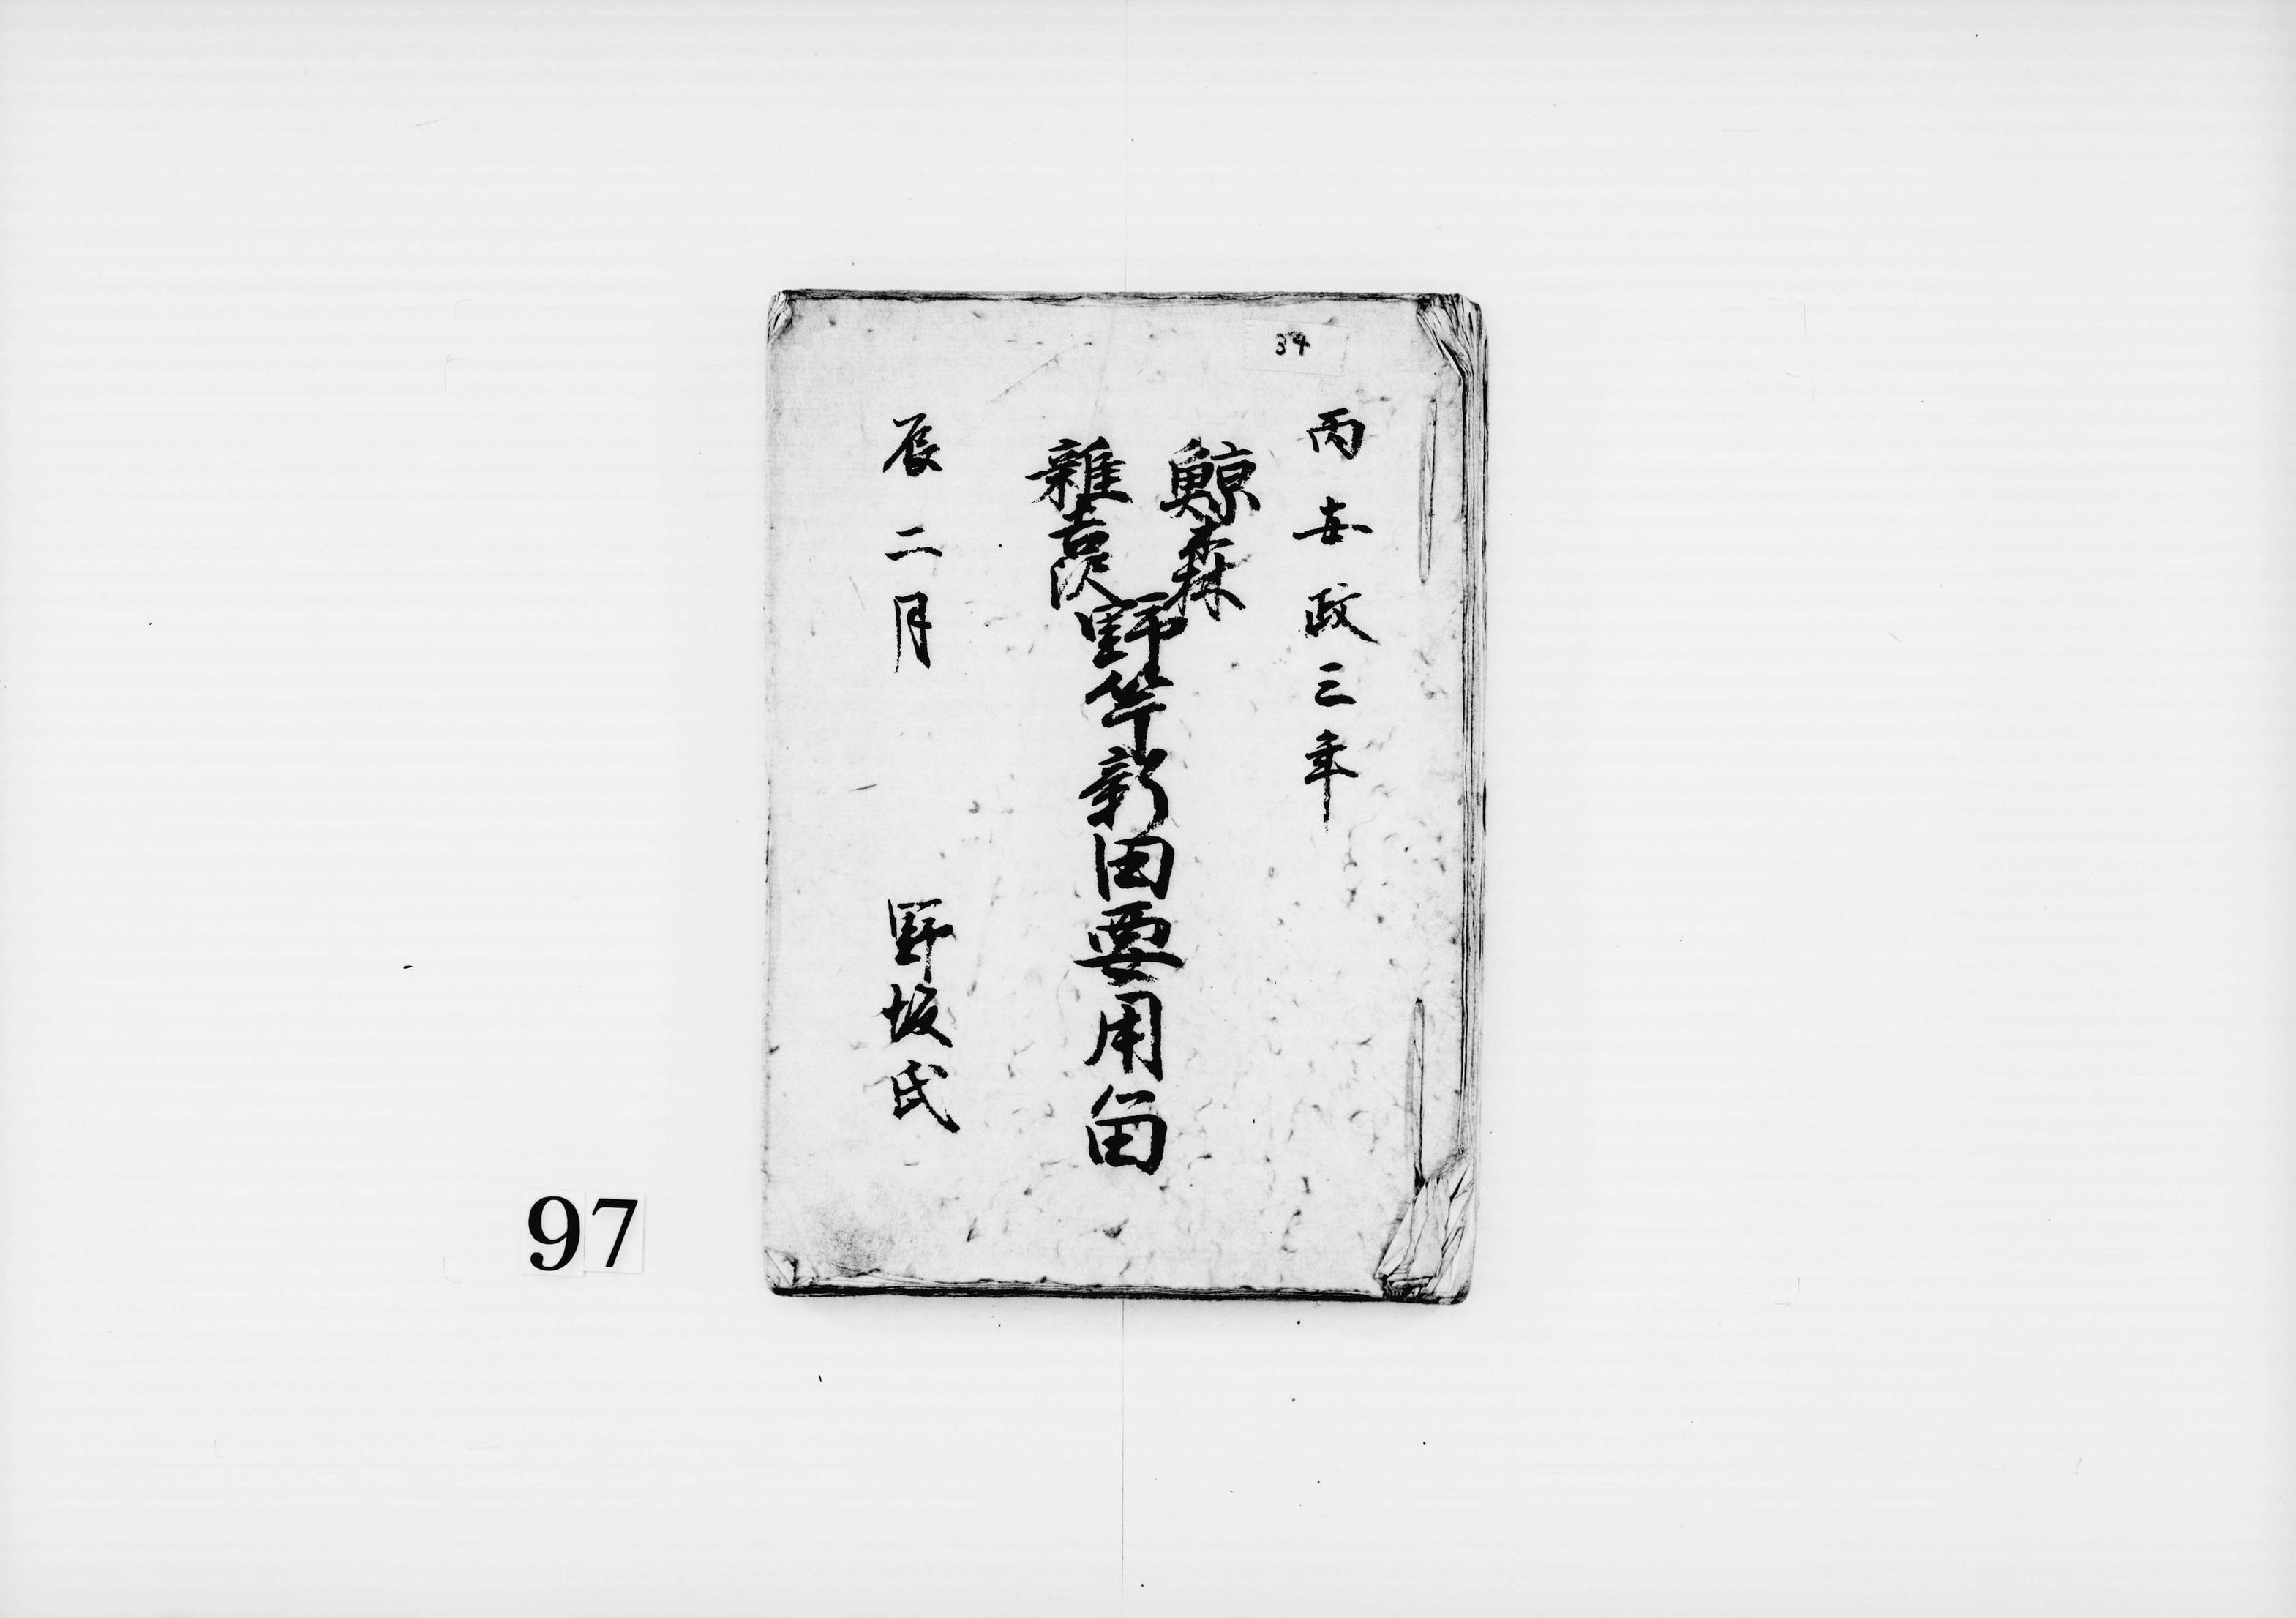 34
丙安政三年
鯨森
雜喜沢
野竿新田要用畄
辰二月
野坂氏
97